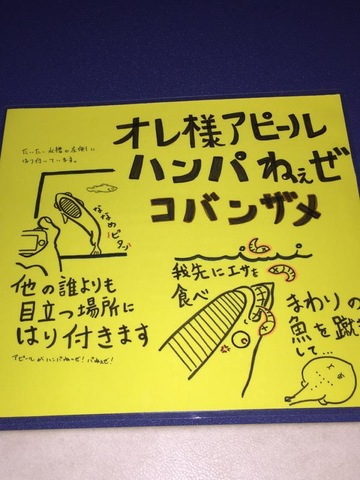 だいたい水槽の左側に
はり付いています。
オレ様アピール
ハンパねぇぜ
コバンザメ
ななめにピタッ
他の誰よりも
目立つ場所に
はり付きます
アピールがハンパねーぜ!パねぇぜ!
我先にエサを
食べ
まわりの
魚を蹴
して…